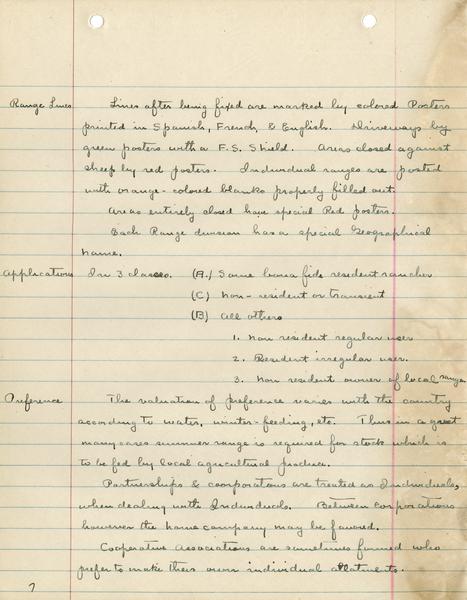 Range Lines Lines after being fixed are marked by colored Posters
printed in Spanish, French, & English. Driveways by
green posters with a F.S. Shield. Areas closed against
sheep by red posters. Individual ranges are posted
with orange-colored blanks properly filled out.
Areas entirely closed have special Red posters.
Each Range division has a special Geographical
name.
Applications In 3 classes. (A.) Same bona fide resident rancher
(C) Non-resident or transient
(B) All others
1. Non resident regular user
2. Resident irregular user.
3. Non resident owner of local range
Preference The valuation of preference varies with the country
according to water, winter-feeding, etc. Thus in a great
many cases summer range is required for stock which is
to be fed by local agricultural produce.
Partnerships & corporations are treated as Individuals,
when dealing with Individuals. Between corporations
however the home company may be favored.
Cooperative Associations are sometimes formed who
prefer to make their own individual allotments.
7